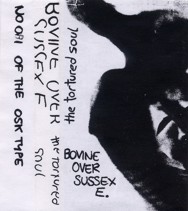 the tortured soul
BOVINE OVER
SUSSEX E
the tortured
soul
NO OPI OF THE OSK TYPE
BOVINE
OVER
SUSSEX
E.